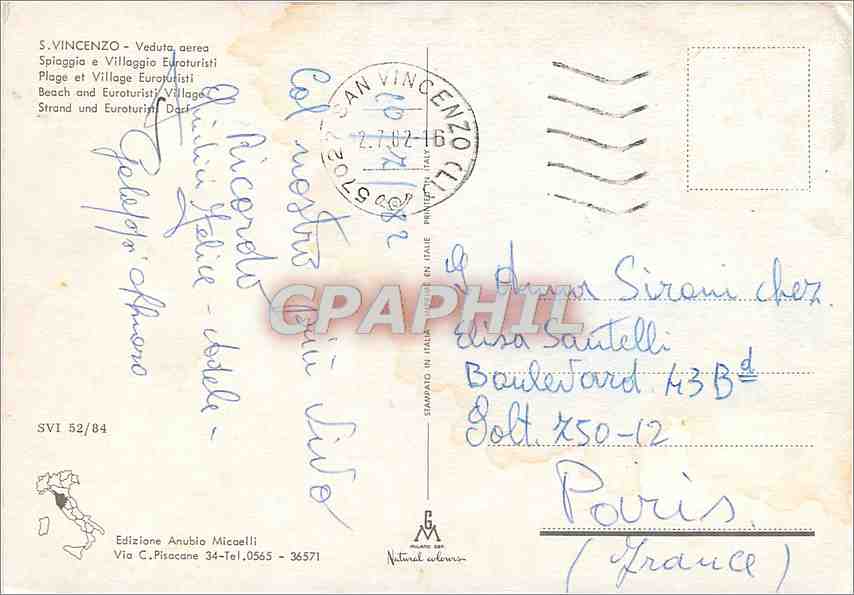 S. VINCENZO - Veduta aerea
Spiaggia e Villaggio Euroturisti
Plage et Village Euroturisti
Beach and Euroturisti Village
Strand und Euroturisti Dorf
57027 SAN VINCENZO (LI)
2.7.82-16
Col nostro più vivo
Ricordo
Felice - Adele -
STAMPATO IN ITALIA - IMPRIMÉ EN ITALIE - PRINTED IN ITALY
CPAPHIL
Anna Sironi chez
Elisa Santelli
Boulevard 43 Bd
Solt. 750-12
Paris
(France)
SVI 52/84
Edizione Anubio Micaelli
Via C. Pisacane 34-Tel. 0565 - 36571
GM
Natural colours